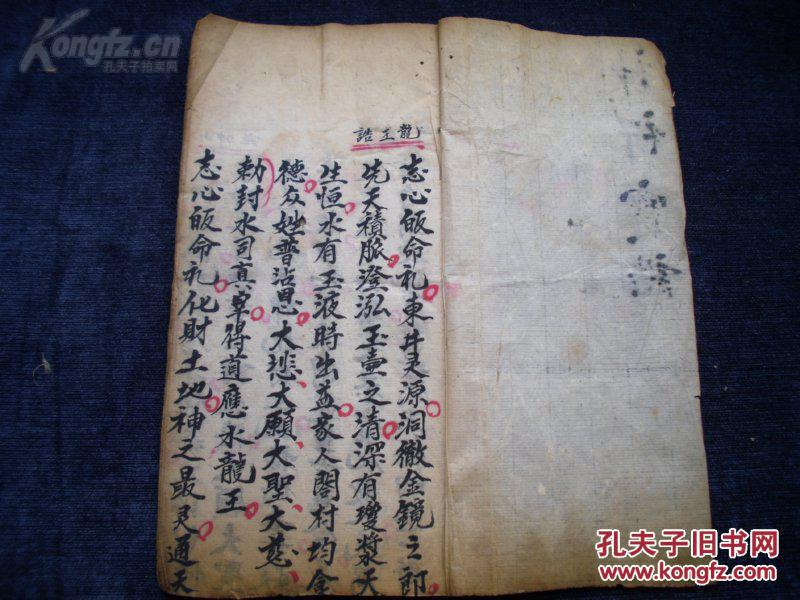 Kongfz.cn
孔夫子拍卖网
龍王誥
志心皈命礼東井灵源洞徹金鏡之郎
先天積脈澄泓玉壺之清深有瓊漿天
生恒水有玉液時出益家人閤村均全
德众姓普沾恩大悲大願大聖大慈
勅封水司真宰得道應水龍王
志心皈命礼化財土地神之最灵通天
孔夫子旧书网
www.kongfz.com